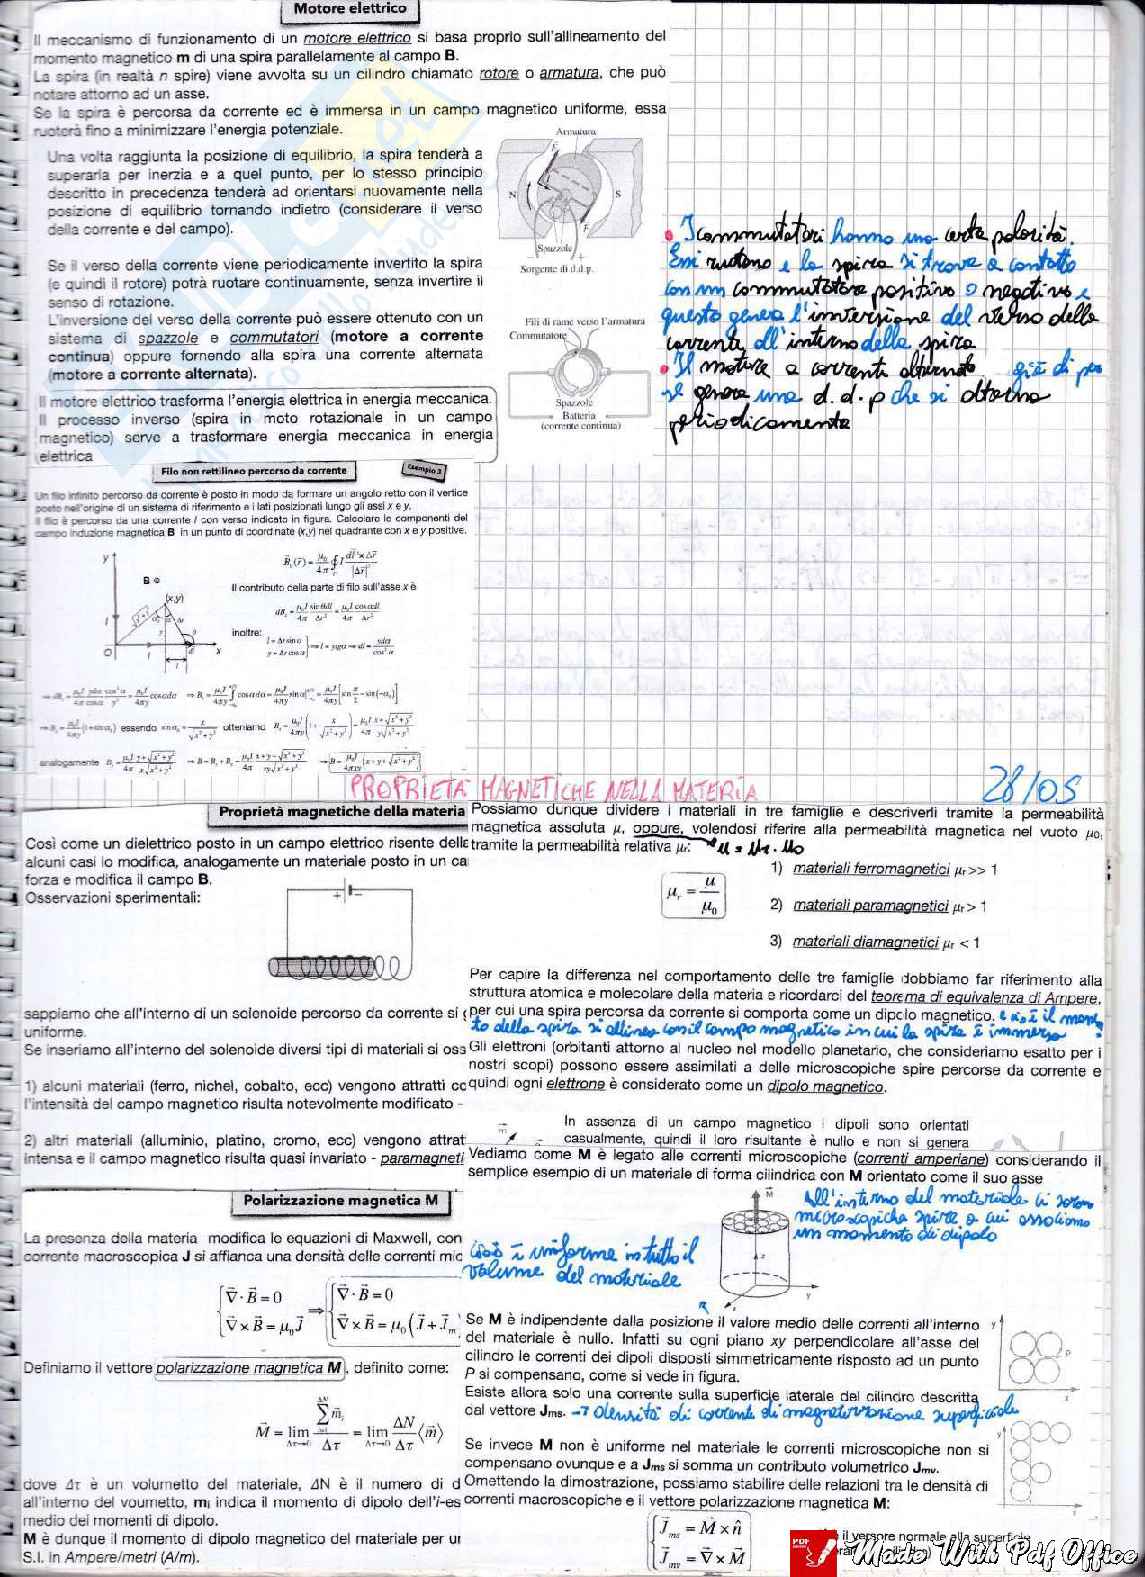 Motore elettrico
Il meccanismo di funzionamento di un motore elettrico si basa proprio sull'allineamento del
momento magnetico m di una spira parallelamente al campo B.
La spira (in realtà n spire) viene avvolta su un cilindro chiamato rotore o armatura, che può
ruotare attorno ad un asse.
Se la spira è percorsa da corrente ed è immersa in un campo magnetico uniforme, essa
ruoterà fino a minimizzare l'energia potenziale.
Una volta raggiunta la posizione di equilibrio, la spira tenderà a
superarla per inerzia e a quel punto, per lo stesso principio
descritto in precedenza tenderà ad orientarsi nuovamente nella
posizione di equilibrio tornando indietro (considerare il verso
della corrente e del campo).
Se il verso della corrente viene periodicamente invertito la spira
(e quindi il rotore) potrà ruotare continuamente, senza invertire il
senso di rotazione.
L'inversione del verso della corrente può essere ottenuto con un
sistema di spazzole e commutatori (motore a corrente
continua) oppure fornendo alla spira una corrente alternata
(motore a corrente alternata).
Il motore elettrico trasforma l'energia elettrica in energia meccanica.
Il processo inverso (spira in moto rotazionale in un campo
magnetico) serve a trasformare energia meccanica in energia
elettrica
Armatura
N
S
Spazzole
Sorgente di d.d.p.
Fili di rame verso l'armatura
Commutatore
Spazzole
Batteria
(corrente continua)
• I commutatori hanno una certa polarità.
Essi ruotano e la spira si trova a contatto
con un commutatore positivo o negativo e
questo genera l'inversione del verso della
corrente all'interno della spira
• Il motore a corrente alternata già di per
sé genera una d.d.p che si alterna
periodicamente
Filo non rettilineo percorso da corrente
Esempio 3
Un filo infinito percorso da corrente è posto in modo da formare un angolo retto con il vertice
posto nell'origine di un sistema di riferimento e i lati posizionati lungo gli assi x e y.
Il filo è percorso da una corrente I con verso indicato in figura. Calcolare le componenti del
campo induzione magnetica B in un punto di coordinate (x,y) nel quadrante con x e y positive.
Il contributo della parte di filo sull'asse x è
inoltre:
essendo
otteniamo
analogamente
PROPRIETÀ MAGNETICHE NELLA MATERIA
28/05
Proprietà magnetiche della materia
Così come un dielettrico posto in un campo elettrico risente delle
alcuni casi lo modifica, analogamente un materiale posto in un ca
forza e modifica il campo B.
Osservazioni sperimentali:
sappiamo che all'interno di un solenoide percorso da corrente si
uniforme.
Se inseriamo all'interno del solenoide diversi tipi di materiali si oss
1) alcuni materiali (ferro, nichel, cobalto, ecc) vengono attratti co
l'intensità del campo magnetico risulta notevolmente modificato -
2) altri materiali (alluminio, platino, cromo, ecc) vengono attrat
intensa e il campo magnetico risulta quasi invariato - paramagneti
Possiamo dunque dividere i materiali in tre famiglie e descriverli tramite la permeabilità
magnetica assoluta μ, oppure, volendosi riferire alla permeabilità magnetica nel vuoto μ0,
tramite la permeabilità relativa μr: μ = μr · μ0
μr = μ/μ0
1) materiali ferromagnetici μr >> 1
2) materiali paramagnetici μr > 1
3) materiali diamagnetici μr < 1
Per capire la differenza nel comportamento delle tre famiglie dobbiamo far riferimento alla
struttura atomica e molecolare della materia e ricordarci del teorema di equivalenza di Ampere,
per cui una spira percorsa da corrente si comporta come un dipolo magnetico. e cioè il momen-
to della spira si allinea con il campo magnetico in cui la spira è immersa
Gli elettroni (orbitanti attorno al nucleo nel modello planetario, che consideriamo esatto per i
nostri scopi) possono essere assimilati a delle microscopiche spire percorse da corrente e
quindi ogni elettrone è considerato come un dipolo magnetico.
In assenza di un campo magnetico i dipoli sono orientati
casualmente, quindi il loro risultante è nullo e non si genera
Vediamo come M è legato alle correnti microscopiche (correnti amperiane) considerando il
semplice esempio di un materiale di forma cilindrica con M orientato come il suo asse
All'interno del materiale ci sono
microscopiche spire a cui associamo
un momento di dipolo
Polarizzazione magnetica M
La presenza della materia modifica le equazioni di Maxwell, con
corrente macroscopica J si affianca una densità delle correnti mic
cioè è uniforme in tutto il
volume del materiale
∇·B=0 ⇒ ∇·B=0
∇×B=μ0J ∇×B=μ0(J+Jm
Definiamo il vettore polarizzazione magnetica M, definito come:
dove Δτ è un volumetto del materiale, ΔN è il numero di d
all'interno del voumetto, mi indica il momento di dipolo dell'i-es
medio dei momenti di dipolo.
M è dunque il momento di dipolo magnetico del materiale per ur
S.I. in Ampere/metri (A/m).
Se M è indipendente dalla posizione il valore medio delle correnti all'interno
del materiale è nullo. Infatti su ogni piano xy perpendicolare all'asse del
cilindro le correnti dei dipoli disposti simmetricamente risposto ad un punto
P si compensano, come si vede in figura.
Esiste allora solo una corrente sulla superficie laterale del cilindro descritta
dal vettore Jms. → densità di corrente di magnetizzazione superficiale
Se invece M non è uniforme nel materiale le correnti microscopiche non si
compensano ovunque e a Jms si somma un contributo volumetrico Jmv.
Omettendo la dimostrazione, possiamo stabilire delle relazioni tra le densità di
correnti macroscopiche e il vettore polarizzazione magnetica M:
Jms = M × n̂
Jmv = ∇ × M
è il versore normale alla superficie
PDF
Made With Pdf Office